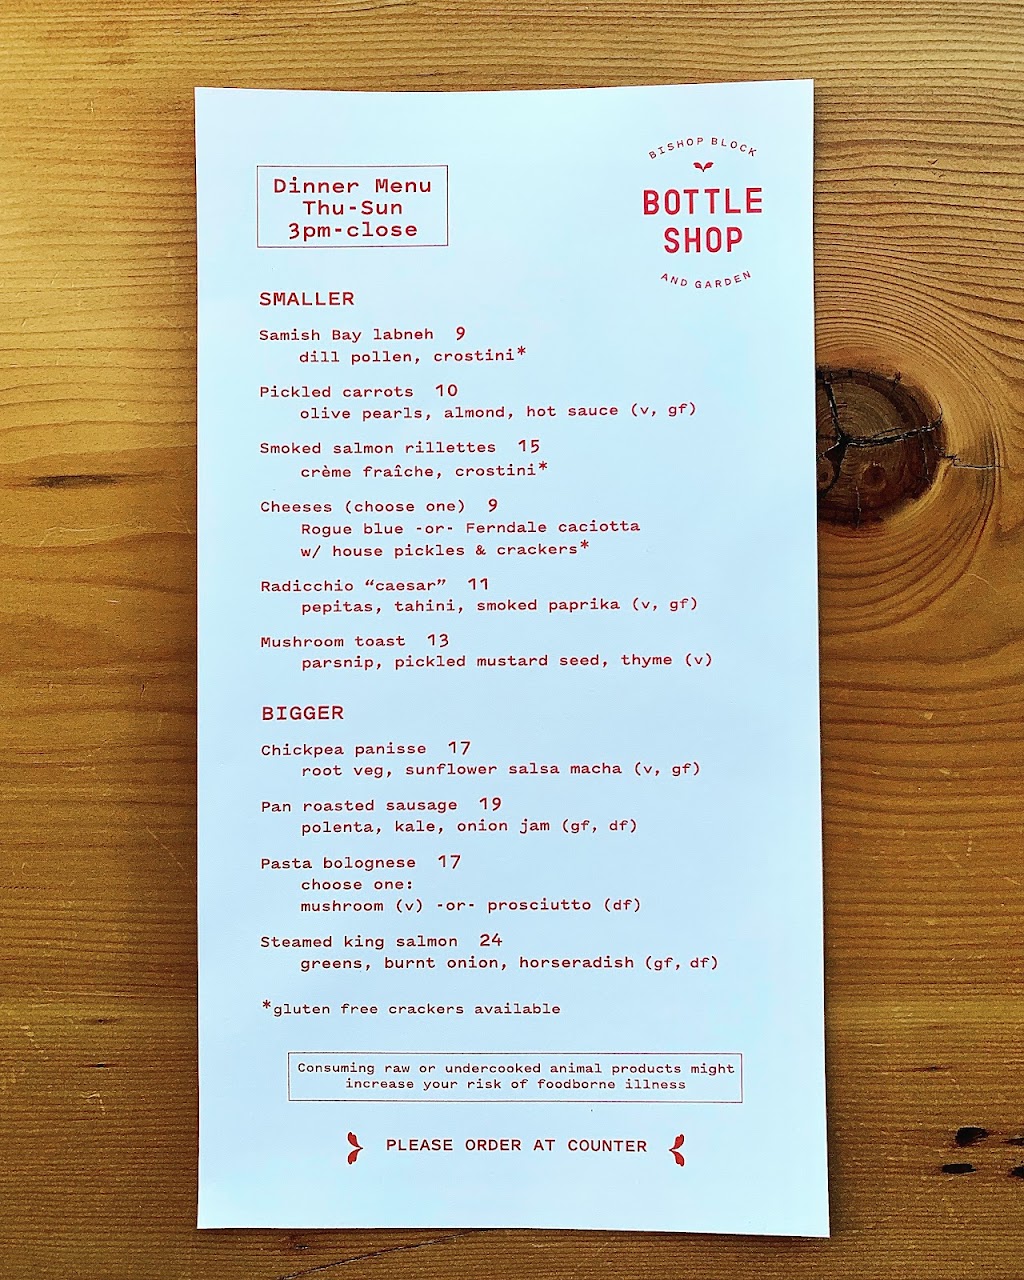 BISHOP BLOCK
BOTTLE
SHOP
AND GARDEN
Dinner Menu
Thu-Sun
3pm-close
SMALLER
Samish Bay labneh 9
dill pollen, crostini*
Pickled carrots 10
olive pearls, almond, hot sauce (v, gf)
Smoked salmon rillettes 15
crème fraîche, crostini*
Cheeses (choose one) 9
Rogue blue -or- Ferndale caciotta
w/ house pickles & crackers*
Radicchio “caesar” 11
pepitas, tahini, smoked paprika (v, gf)
Mushroom toast 13
parsnip, pickled mustard seed, thyme (v)
BIGGER
Chickpea panisse 17
root veg, sunflower salsa macha (v, gf)
Pan roasted sausage 19
polenta, kale, onion jam (gf, df)
Pasta bolognese 17
choose one:
mushroom (v) -or- prosciutto (df)
Steamed king salmon 24
greens, burnt onion, horseradish (gf, df)
*gluten free crackers available
Consuming raw or undercooked animal products might
increase your risk of foodborne illness
PLEASE ORDER AT COUNTER